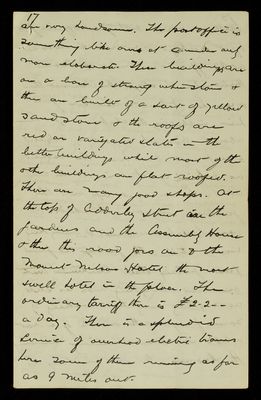 17
are very handsome. The post office is
something like ours at Dunedin only
more elaborate. These buildings are
on a base of strong white stone &
then are built of a sort of yellow
sandstone & the roofs are
red or variegated slates in the
better buildings while most of the
other buildings are flat roofed.
There are many good shops. At
the top of Adderley Street are the
gardens and the Assembly House
& then this road goes on to the
Mount Nelson Hotel the most
swell hotel in the place. The
ordinary tariff there is £2-2--
a day. There is a splendid
service of overhead electric trams
here some of them running as far
as 9 miles out.